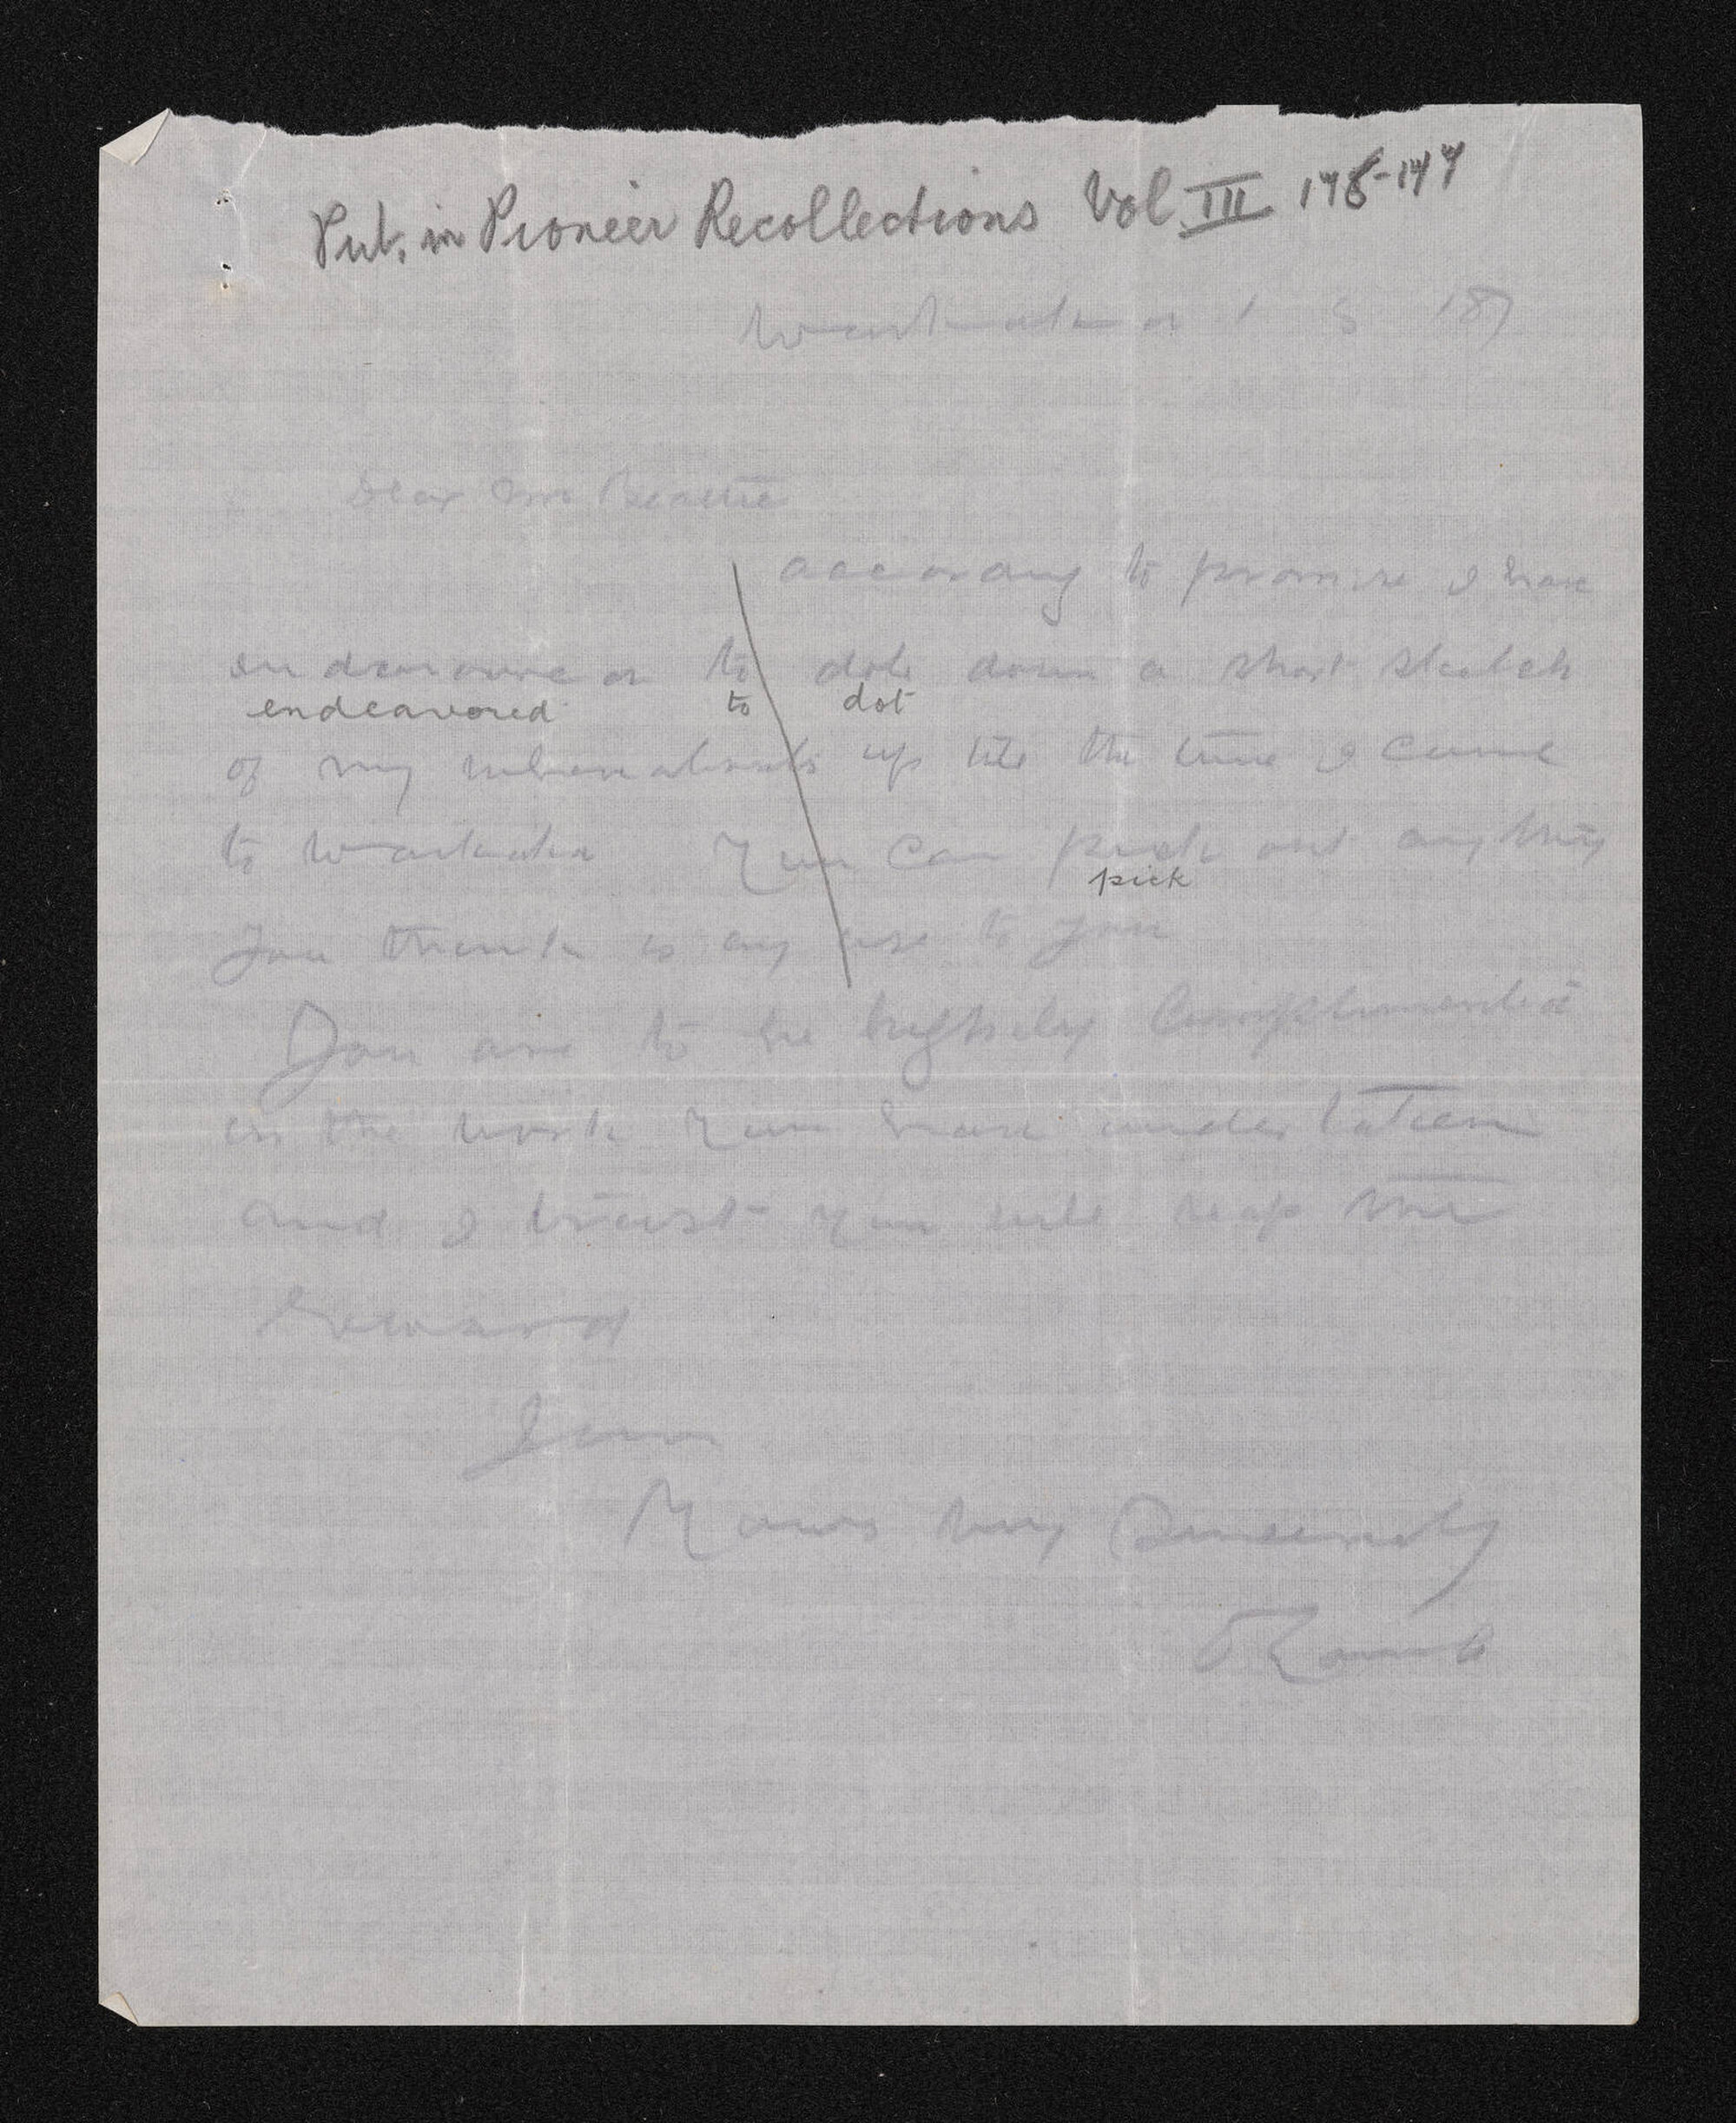 Pub. in Pioneer Recollections Vol III
Dear Mr Beattie
according to promise I have
to dot down a short sketch
endeavored to dot
of my whereabouts up till the time I came
to You can pick out anything
pick
you think is any use to you
You are to be highly Complimented
in the work you have undertaken
and I trust you will reap the
reward
Yours very Sincerely